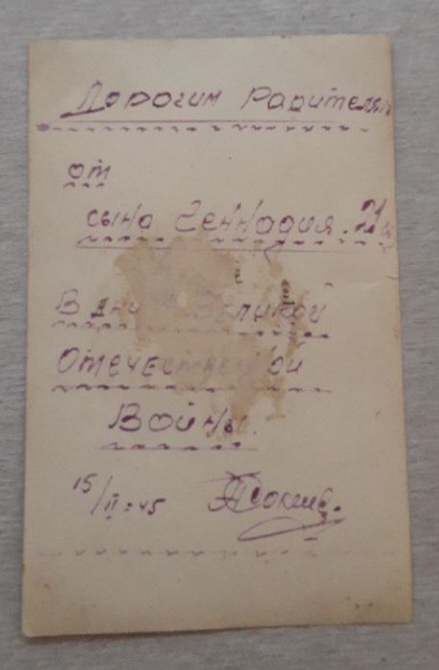 Дорогим Радителям
от
сына Геннадия. 21
В дни Великой
Отечественной
Войны.
15/II-45